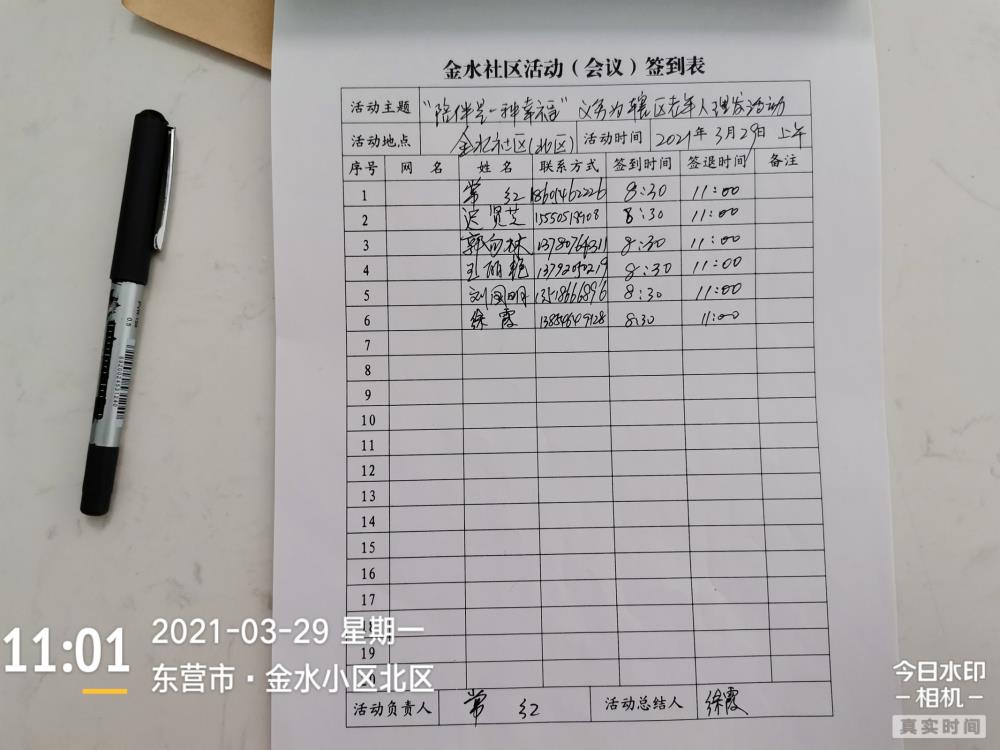 金水社区活动（会议）签到表
活动主题 “陪伴是一种幸福” 义务为辖区老年人理发活动
活动地点 金水社区(北区) 活动时间 2021年3月29日 上午
序号 网 名 姓 名 联系方式 签到时间 签退时间 备注
1 常 红 18601462226 8:30 11:00
2 迟贤芝 8:30 11:00
3 郭向林 8:30 11:00
4 王丽艳 8:30 11:00
5 刘国明 13518666896 8:30 11:00
6 徐霞 8:30 11:00
7
8
9
10
11
12
13
14
15
16
17
18
19
活动负责人 常 红 活动总结人 徐霞
11:01
2021-03-29 星期一
东营市·金水小区北区
今日水印
-相机-
真实时间
0.5